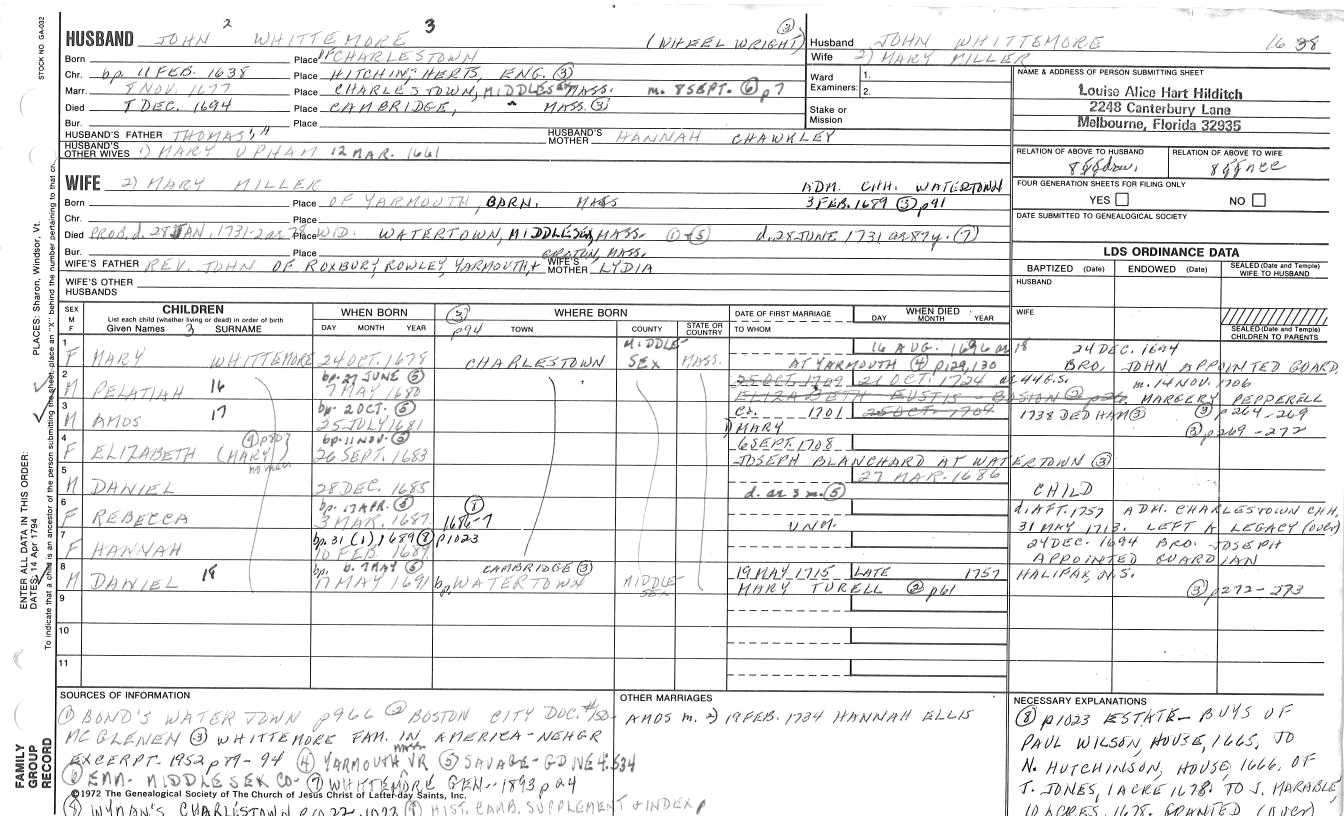 STOCK NO. GA-032
2 3
HUSBAND JOHN WHITTEMORE (WHEEL WRIGHT) ③
Born Place CHARLESTOWN
Chr. bp. 11 FEB. 1638 Place HITCHIN, HERTS, ENG. ③
Marr. 8 NOV. 1677 Place CHARLESTOWN, MIDDLESEX MASS. m. 8 SEPT. ⑥ p7
Died 1 DEC. 1694 Place CAMBRIDGE, " MASS. ③
Bur. Place
HUSBAND'S FATHER THOMAS HUSBAND'S MOTHER HANNAH CHAWKLEY
HUSBAND'S OTHER WIVES 1) MARY UPHAM 12 MAR. 1661
Husband JOHN WHITTEMORE 1638
Wife 2) MARY MILLER
Ward Examiners: 1.
2.
Stake or Mission
NAME & ADDRESS OF PERSON SUBMITTING SHEET
Louise Alice Hart Hilditch
2248 Canterbury Lane
Melbourne, Florida 32935
RELATION OF ABOVE TO HUSBAND RELATION OF ABOVE TO WIFE
FOUR GENERATION SHEETS FOR FILING ONLY
YES NO
DATE SUBMITTED TO GENEALOGICAL SOCIETY
WIFE 2) MARY MILLER ADM. CHH. WATERTOWN
Born Place OF YARMOUTH, BARN. MASS 3 FEB. 1689 ③ p91
Chr. Place
Died PROB. d. 28 JAN. 1731-2 Place WID. WATERTOWN, MIDDLESEX, MASS. ① + ⑤ d. 28 JUNE 1731 ae 87 y. (7)
Bur. Place GROTON, MASS.
WIFE'S FATHER REV. JOHN OF ROXBURY, ROWLEY, YARMOUTH, + WIFE'S MOTHER LYDIA
WIFE'S OTHER HUSBANDS
LDS ORDINANCE DATA
BAPTIZED (Date) ENDOWED (Date) SEALED (Date and Temple) WIFE TO HUSBAND
HUSBAND
WIFE
SEALED (Date and Temple) CHILDREN TO PARENTS
SEX M F
CHILDREN
List each child (whether living or dead) in order of birth
Given Names 3 SURNAME
WHEN BORN
DAY MONTH YEAR
③ p94
WHERE BORN
TOWN COUNTY STATE OR COUNTRY
DATE OF FIRST MARRIAGE
TO WHOM
WHEN DIED
DAY MONTH YEAR
1 F MARY WHITTEMORE 24 OCT. 1678 CHARLESTOWN MIDDLE SEX MASS. 16 AUG. 1696 ae 18 24 DEC. 1694
AT YARMOUTH ④ p129,130 BRO. JOHN APPOINTED GUARD.
2 M PELATIAH 16 bp. 27 JUNE ⑤ 7 MAY 1680 25 OCT 1709 21 OCT. 1724 ae 44 G.S. m. 14 NOV. 1706
ELIZABETH EUSTIS - BOSTON MARGERY PEPPERELL
3 M AMOS 17 bp. 2 OCT. ⑤ 25 JULY 1681 ca. 1701 25 OCT. 1709 1738 DEDHAM ③ ③ p264-269
1) MARY ③ p269-272
4 F ELIZABETH (MARY) ④ p80 bp. 11 NOV. ⑤ 26 SEPT. 1683 6 SEPT. 1708
JOSEPH BLANCHARD AT WATERTOWN ③
5 M DANIEL 28 DEC. 1685 27 MAR. 1686
d. ae 3 m. ⑤ CHILD
6 F REBECCA bp. 17 APR. ⑤ 3 MAR. 1687 ⑧ 1686-7 d. AFT. 1757 ADM. CHARLESTOWN CHH.
UNM. 31 MAY 1713. LEFT A LEGACY (over)
7 F HANNAH bp. 31 (1) 1689 ⑧ p1023 10 FEB. 1689 24 DEC. 1694 BRO. JOSEPH
APPOINTED GUARDIAN
8 M DANIEL 18 bp. b. 7 MAY ⑤ 17 MAY 1691 CAMBRIDGE ③ bp. WATERTOWN MIDDLE SEX 19 MAY 1715 LATE 1757 HALIFAX, N.S.
MARY TURELL ② p61 ③ p272-273
9
10
11
ENTER ALL DATA IN THIS ORDER:
DATES: 14 Apr 1794
PLACES: Sharon, Windsor, Vt.
To indicate that a child is an ancestor of the person submitting the sheet, place an "X" behind the number pertaining to that ch
FAMILY GROUP RECORD
SOURCES OF INFORMATION
① BOND'S WATERTOWN p966 ② BOSTON CITY DOC. #150-
MCGLENEN ③ WHITTEMORE FAM. IN AMERICA-NEHGR
EXCERPT-1952 p89-94 ④ YARMOUTH MASS. VR ⑤ SAVAGE-GDNE 4:534
⑥ EMR- MIDDLESEX CO- ⑦ WHITTEMORE GEN-1893 p24
©1972 The Genealogical Society of The Church of Jesus Christ of Latter-day Saints, Inc.
⑧ WYMAN'S CHARLESTOWN p1022-1023 ⑨ HIST. CAMB. SUPPLEMENT & INDEX p
OTHER MARRIAGES
AMOS m. 2) 19 FEB. 1734 HANNAH ELLIS
NECESSARY EXPLANATIONS
⑧ p1023 ESTATE- BUYS OF
PAUL WILSON, HOUSE, 1665, TO
N. HUTCHINSON, HOUSE, 1666. OF
T. JONES, 1 ACRE 1678. TO J. MARABLE,
10 ACRES, 1678. GRANTED (over)